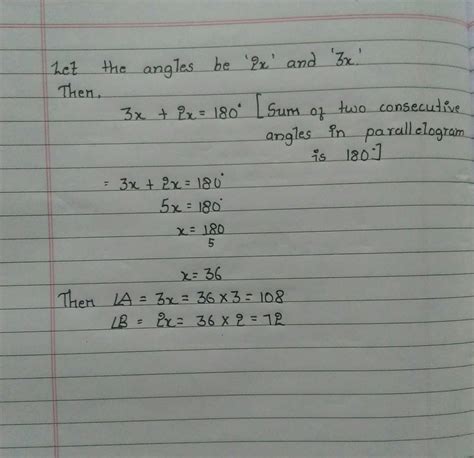 Let the angles be '2x' and '3x.'
Then,
3x + 2x = 180° [Sum of two consecutive
angles in parallelogram
is 180°]
= 3x + 2x = 180°
5x = 180°
x = 180
5
x = 36
Then ∠A = 3x = 36 × 3 = 108
∠B = 2x = 36 × 2 = 72